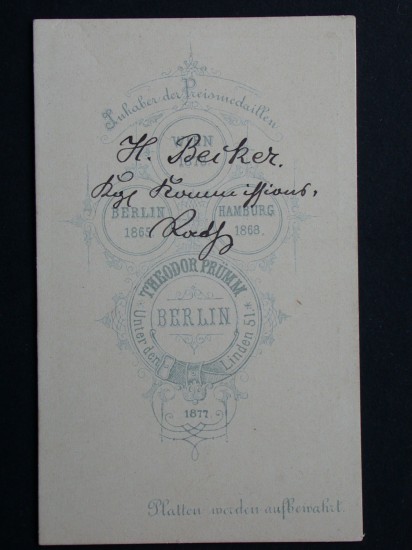 Inhaber der Preismedaillen
WIEN
H. Becker.
Kgl Kommissions,
BERLIN
1865.
HAMBURG
1868.
Rath
THEODOR PRÜMM
BERLIN
Unter den Linden 51.
1877
Platten werden aufbewahrt.